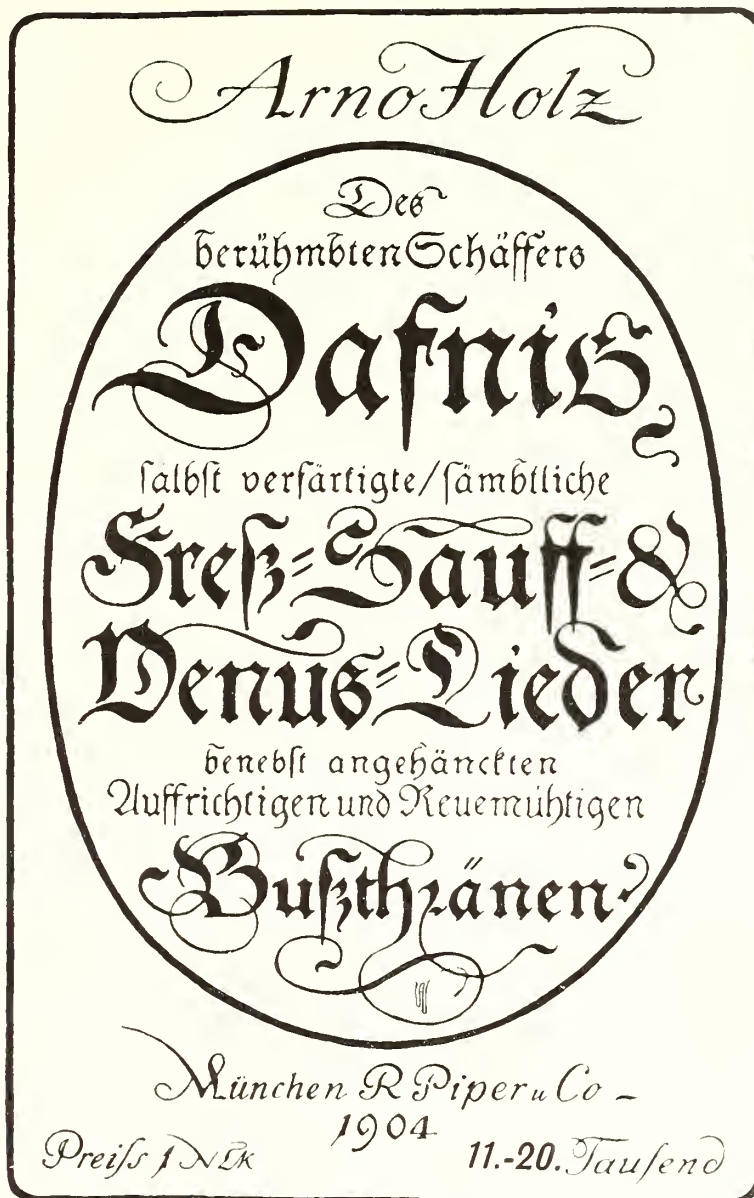 Arno Holz
Des
berühmbten Schäffers
Dafnis
sälbst verfärtigte/sämbtliche
Freß-Sauff-&
Venus-Lieder
benebst angehänckten
Auffrichtigen und Reuemühtigen
Bußthränen
München R Piper u Co -
1904
Preiss 1 Mk
11.-20. Tausend